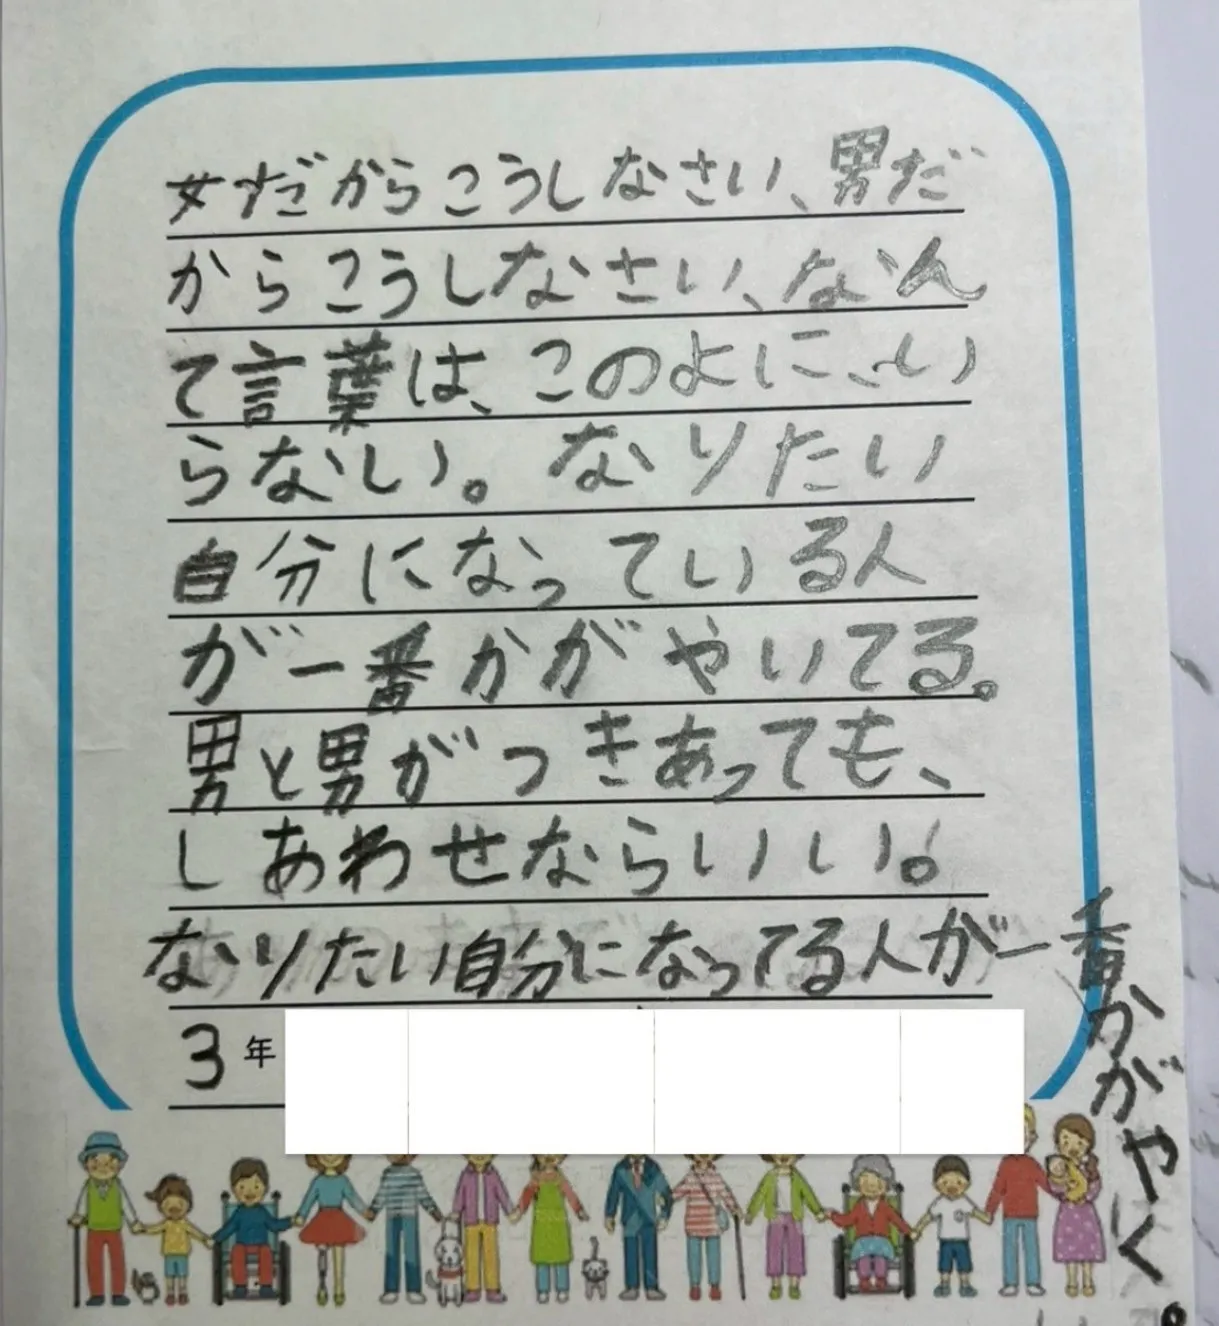 女だからこうしなさい、男だ
からこうしなさい、なん
て言葉は、このよに、い
らない。なりたい
自分になっている人
が一番かがやいてる。
男と男がつきあっても、
しあわせならいい。
なりたい自分になってる人が一番かがやく。
3年